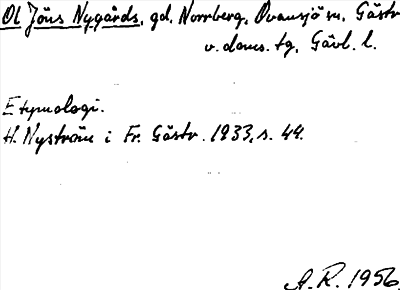 Ol Jöns Nygårds, gd. Norrberg, Ovansjö sn, Gästr
v. doms. tg, Gävl. l.
Etymologi.
H. Nyström i Fr. Gästr. 1933, s. 44.
A.R. 1956.